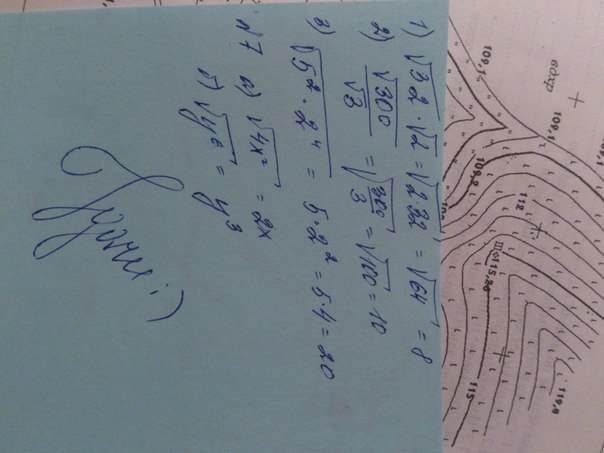 1) √32 · √2 = √2·32 = √64 = 8
2) √300/√3 = √300/3 = √100 = 10
3) √5² · 2⁴ = 5 · 2² = 5·4 = 20
№7 а) √4x² = 2x
б) √y⁶ = y³
Удачи :)
109,1
109,1
вдхр
109,2
112
115,26
115
119,8